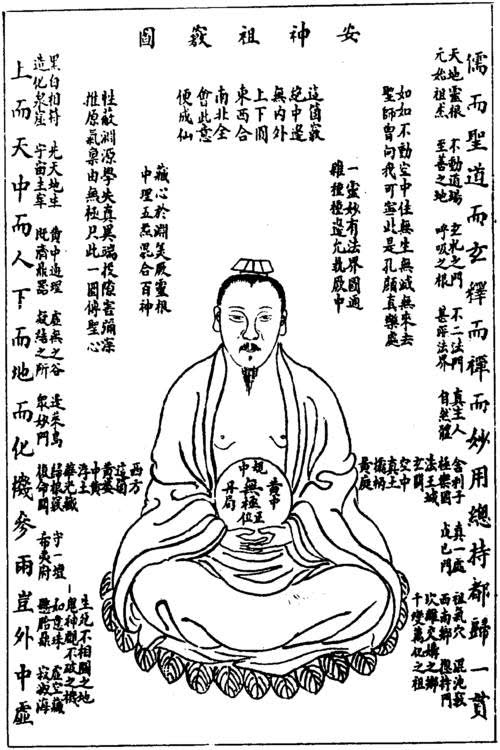 安神祖竅圖
儒而聖道而玄釋而禪而妙用總持都歸一貫
天地靈根 不動道場 玄牝之門 不二法門 真主人 舍利子 真一處 祖氣穴 混沌竅
元始祖炁 至善之地 呼吸之根 甚深法界 自然體 極樂國 戊己門 西南鄉 摠持門
法王城 坎離交媾之鄉
玄關 千變萬化之祖
空中
真土
欛柄
黃庭
如如不動空中住無生無滅無來去
聖師曾向我可寧此是孔顏真樂處
一靈妙有法界圓通
離種種邊允執厥中
這箇竅
總中邊
無內外
上下圓
東西合
南北全
會此意
便成仙
藏心於淵美厥靈根
中理五炁混合百神
性蔽淵源學失真異端投隙害彌深
推原氣稟由無極只此一圖傳聖心
黃中
正位
規中
無極
丹扃
西方
這箇
黃婆
中黃
淨土
生死不相關之地
鬼神覷不破之機
華光藏 如意珠 虛空藏
黑白相符 先天地生 黃中通理 虛無之谷 蓬萊島 歸根竅 守一壇
造化泉窟 宇宙主宰 既濟鼎器 凝結之所 眾妙門 復命關 希夷府 懸胎鼎 寂滅海
上而天中而人下而地而化機參兩豈外中虛